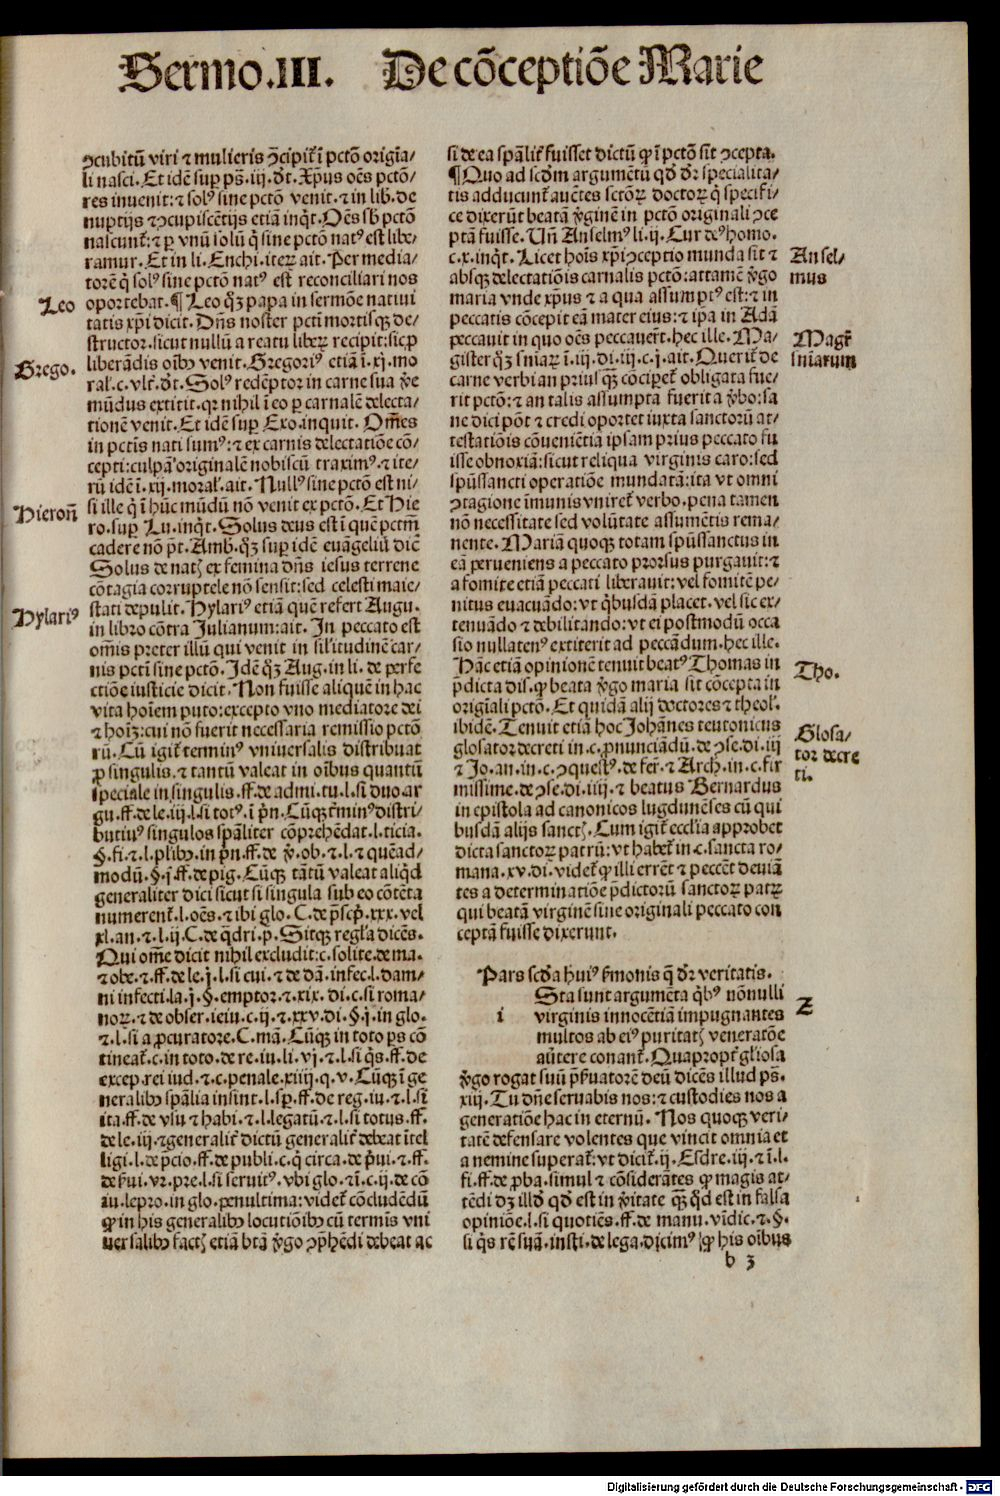 Sermo.III. De cōceptiōe Marie
ꝯcubitū viri ⁊ mulieris ꝯcipit̄ ī pctō origīa/
li nasci. Et idē sup ps̄. iij. dt̄. Xp̄us oēs pctō/
res inuenit: ⁊ solꝰ sine pctō venit. ⁊ in lib. de
nuptijs ⁊ ꝯcupiscētijs etiā inqt̄. Oēs sb̄ pctō
nascunt̄: ⁊ p vnū solū q̄ sine pctō natꝰ est libe/
ramur. Et in li. Enchi. iterꝝ ait. Per media/
torē q̄ solꝰ sine pctō natꝰ est reconciliari nos
Leo
oportebat. ¶ Leo qꝫ papa in sermōe natiui
tatis xp̄i dicit. Dn̄s noster pcti mortisqꝫ de/
structor. sicut nullū a reatu liberꝝ recipit: sic p
Grego.
liberādis oībꝰ venit. Gregoriꝰ etiā ī. xj. mo
ral. c. vlt̄. dt̄. Solꝰ redēptor in carne sua v̄e
mūdus extitit. qꝛ nihil ī eo p carnalē delecta/
tionē venit. Et idē sup Exo. inquit. Om̄es
in pctīs nati sumꝰ: ⁊ ex carnis delectatiōe cō/
cepti: culpā originalē nobiscū traximꝰ. ⁊ ite/
rū idē ī. xij. moral. ait. Nullꝰ sine pctō est ni/
Hieroñ
si ille q̄ ī hūc mūdū nō venit ex pctō. Et Hie
ro. sup Lu. inqt̄. Solus deus est ī quē pctm̄
cadere nō pt̄. Amb. qꝫ sup idē euāgeliū dič
Solus de natꝭ ex femina dn̄s iesus terrene
cōtagia corruptele nō sensit: sed celesti maie/
Hylariꝰ
stati depulit. Hylariꝰ etiā quē refert Augu.
in libro cōtra Julianum: ait. In peccato est
om̄is preter illū qui venit in sil'itudinē car/
nis pcti sine pctō. Idē qꝫ Aug. in li. de perfe
ctiōe iusticie dicit. Non fuisse aliquē in hac
vita hoīem puto: excepto vno mediatore dei
⁊ hoīꝫ: cui nō fuerit necessaria remissio pctō
rū. Cū igit̄ terminꝰ vniuersalis distribuat
ꝓ singulis. ⁊ tantū valeat in oībus quantū
speciale in singulis. ff. de admi. tu. l. si duo. ar
gu. ff. de le. iij. l. si totꝰ. ī p̄n. Cūqꝫ t̄minꝰ distri/
butiuꝰ singulos sp̄aliter cōprehēdat. l. ticia.
§. fi. ⁊ l. plibꝰ. in p̄n. ff. de v̄. ob. ⁊ l. ⁊ quēad/
modū. §. j. ff. de pig. Cūqꝫ tātū valeat aliqd
generaliter dici sicut si singula sub eo cōtēta
numerent̄. l. oēs. ⁊ ibi glo. C. de p̄scp̄. xxx. vel
xl. an. ⁊ l. ij. C. de qdri. p. Sitqꝫ regl'a dicēs.
Qui om̄e dicit nihil excludit: c. solite. de ma.
⁊ obe. ⁊ ff. de le. j. l. si cui. ⁊ de dā. infec. l. dam/
ni infecti. la. j. §. emptor. ⁊ xix. di. c. si roma/
noꝝ. ⁊ de obser. ieiu. c. ij. ⁊ xxv. di. §. j. in glo.
⁊ l. si a ꝓcuratore. C. mā. Cūqꝫ in toto ps cō
tineat̄. c. in toto. de re. iu. li. vj. ⁊ l. si q̄s. ff. de
excep. rei iud. ⁊ c. penale. xiiij. q. v. Cūqꝫ ī ge
neralibꝰ sp̄alia insint. l. sp. ff. de reg. iu. ⁊ l. si
ita. ff. de vsu ⁊ habi. ⁊ l. legatū. ⁊ l. si totus. ff.
de le. iij. ⁊ generalit̄ dictū generalit̄ debeat ītel
ligi. l. de p̄cio. ff. de publi. c. q̄ circa. de p̄ui. ⁊ ff.
de ẜui. vr. pre. l. si seruitꝰ. vbi glo. ⁊ ī. c. ij. de cō
iu. lepro. in glo. penultima: videt̄ cōcludēdū
ꝙ in his generalibꝰ locutiōibꝰ cū termīs vni
uersalibꝰ factꝭ etiā btā v̄go ꝯp̄hēdi debeat ac
si de ea sp̄alit̄ fuisset dictū ꝙ ī pctō sit ꝯcepta.
¶ Quo ad scdm argumētū qd dr̄ specialita/
tis adducunt̄ auctes sctōꝝ doctoꝝ q̄ specifi/
ce dixerūt beatā v̄ginē in pctō originali ꝯce
ptā fuisse. Vñ Anselmꝰ li. ij. Cur deꝰ homo.
Ansel/
mus
c. x. inqt̄. Licet hoīs xp̄i ꝯceptio munda sit ⁊
absqꝫ delectatiōis carnalis pctō: attamē v̄go
maria vnde xp̄us ⁊ a qua assumptꝰ est: ⁊ in
peccatis cōcepit eā mater eius: ⁊ ip̄a in Adā
Magr̄
sniarum
peccauit in quo oēs peccauer̄t. hec ille. Ma/
gister qꝫ sniaꝝ ī. iij. di. iij. c. j. ait. Querit̄ de
carne verbi an priusqꝫ cōcipet̄ obligata fue/
rit pctō: ⁊ an talis assumpta fuerit a v̄bo: sa
ne dici pōt ⁊ credi oportet iuxta sanctorū at/
testatiōis cōueniētiā ipsam prius peccato fu
isse obnoxiā: sicut reliqua virginis caro: sed
sp̄ussancti operatiōe mundatā: ita vt omni
ꝯtagione īmunis vniret̄ verbo. pena tamen
nō necessitate sed volūtate assumētis rema/
nente. Mariā quoqꝫ totam sp̄ussanctus in
eā perueniens a peccato prorsus purgauit: ⁊
a fomite etiā peccati liberauit: vel fomitē pe/
nitus euacuādo: vt q̄busdā placet. vel sic ex/
tenuādo ⁊ debilitando: vt ei postmodū occa
sio nullatenꝰ extiterit ad peccādum. hec ille.
Tho.
Hāc etiā opinionē tenuit beatꝰ Thomas in
p̄dicta dis. ꝙ beata v̄go maria sit cōcepta in
orīgīali pctō. Et quidā alij doctores ⁊ theol'.
ibidē. Tenuit etiā hoc Johānes teutonicus
Glosa/
tor decre
ti.
glosator decreti in. c. ꝓnunciādū. de ꝯse. di. iij
⁊ Jo. an. in. c. ꝯquestꝰ. de fer̄. ⁊ Arch. in. c. fir
missime. de ꝯse. di. iiij. ⁊ beatus Bernardus
in epistola ad canonicos lugdunēses cū qui
busdā alijs sanctꝭ. Cum igit̄ eccl'ia approbet
dicta sanctoꝝ patrū: vt habet̄ in. c. sancta ro/
mana. xv. di. videt̄ ꝙ illi errēt ⁊ peccēt deuiā
tes a determinatiōe p̄dictorū sanctoꝝ patꝝ
qui beatā virginē sine originali peccato con
ceptā fuisse dixerunt.
Pars scda huiꝰ ẜmonis q̄ dr̄ veritatis.
Z
i Sta sunt argumēta q̄bꝰ nōnulli
virginis innocētiā impugnantes
multos ab eiꝰ puritatꝭ veneratōe
aūtere conant̄. Quapropt̄ gl'iosa
v̄go rogat suū p̄ẜuatorē deū dicēs illud ps̄.
xij. Tu dn̄e seruabis nos: ⁊ custodies nos a
generatiōe hac in eternū. Nos quoqꝫ veri/
tatē defensare volentes que vincit omnia et
a nemine superat̄: vt dicit̄. ij. Esdre. iij. ⁊ ī. l.
fi. ff. de ꝓba. simul ⁊ cōsiderātes ꝙ magis at/
tēdi dꝫ illd qd est in v̄itate qꝫ qd est in falsa
opiniōe. l. si quotiēs. ff. de manu. vīdic. ⁊ §.
si q̄s rē suā. insti. de lega. dicimꝰ ꝙ his oībus
b 3
Digitalisierung gefördert durch die Deutsche Forschungsgemeinschaft - DFG